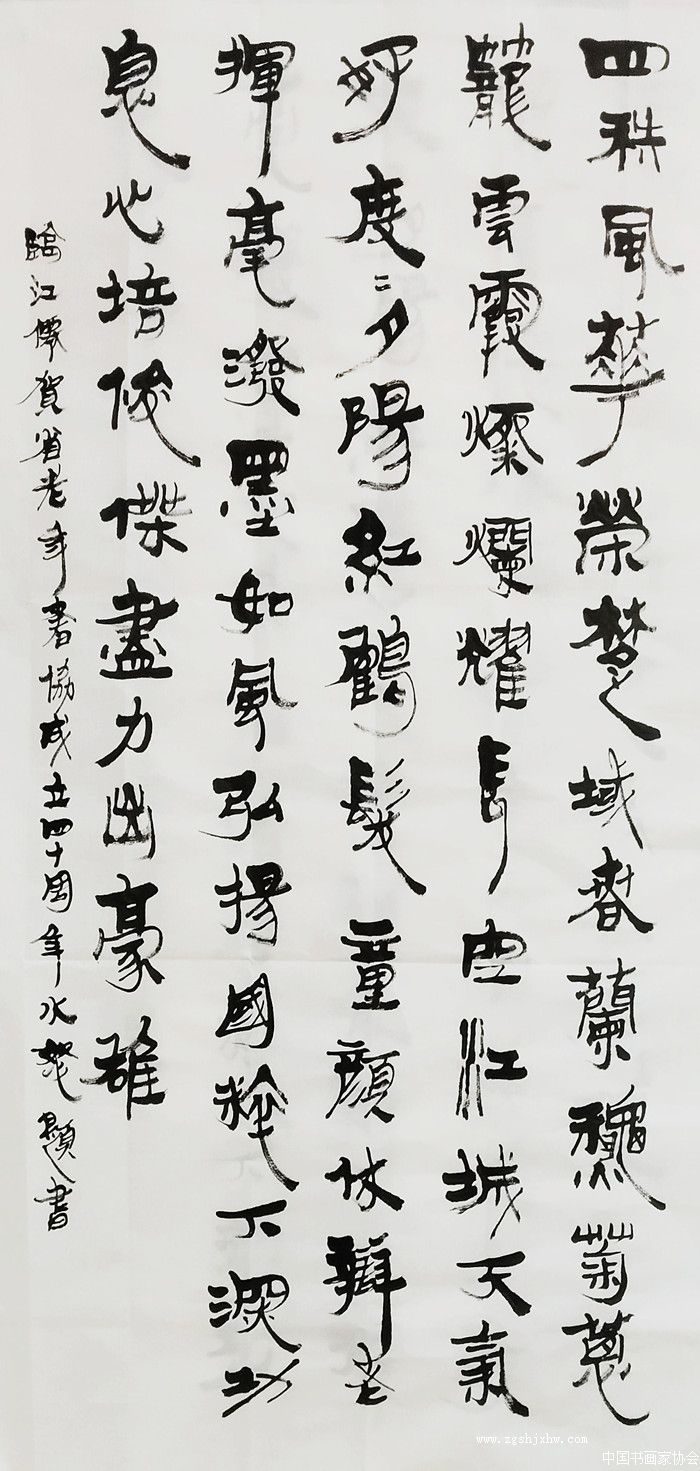 四秩風華榮楚域春蘭龝菊蔥
蘢雲霞燦爛耀長空江城天氣
好度〻夕陽紅鶴髮童顏休老
揮毫潑墨如風弘揚國粹下深功
息心培俊傑盡力出豪雄
臨江僊賀省老年書協成立四十周年水題書
www.zgshjxhw.com
中国书画家协会